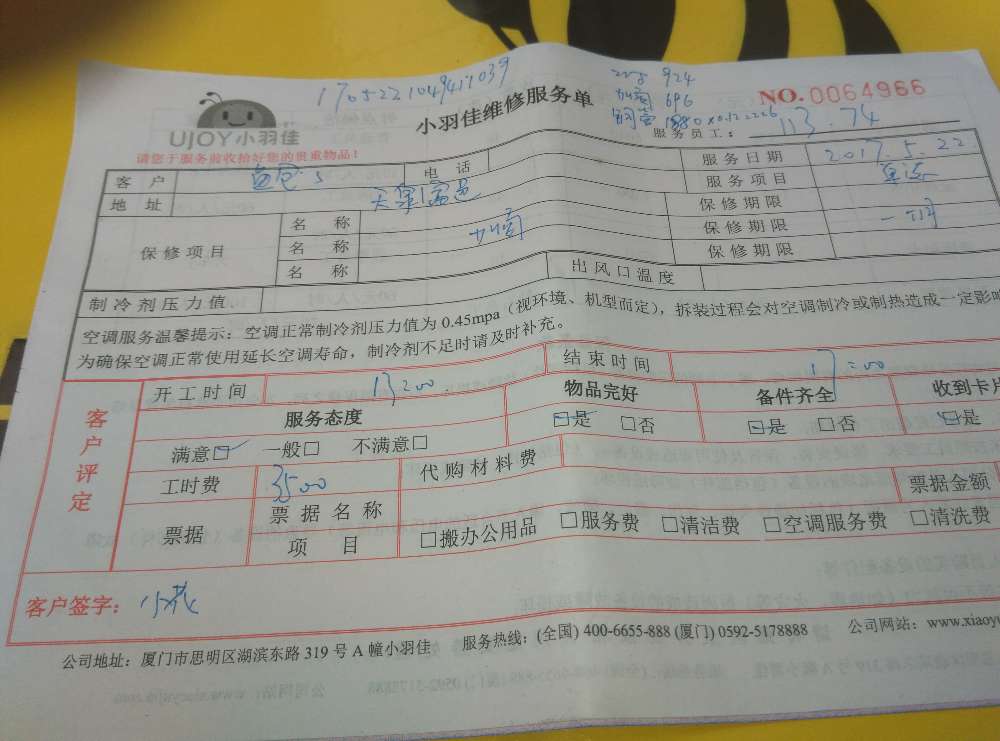 1705221049417039
924
696
NO.0064966
小羽佳维修服务单
UJOY小羽佳
服务员工：
113.74
请您于服务前收拾好您的贵重物品！
客户 电话 服务日期 2017.5.22
地址 服务项目
保修项目 名称 保修期限
名称 保修期限
名称 保修期限
制冷剂压力值 出风口温度
空调服务温馨提示：空调正常制冷剂压力值为 0.45mpa（视环境、机型而定），拆装过程会对空调制冷或制热造成一定影响
为确保空调正常使用延长空调寿命，制冷剂不足时请及时补充。
客户评定
开工时间 13:00 结束时间 17:00
服务态度 物品完好 备件齐全 收到卡片
满意□ 一般□ 不满意□ □是 □否 □是 □否 □是
工时费 3500 代购材料费
票据 票据名称 票据金额
项目 □搬办公用品 □服务费 □清洁费 □空调服务费 □清洗费
客户签字：
公司地址：厦门市思明区湖滨东路 319 号 A 幢小羽佳 服务热线：(全国) 400-6655-888 (厦门) 0592-5178888 公司网站：www.xiaoyu